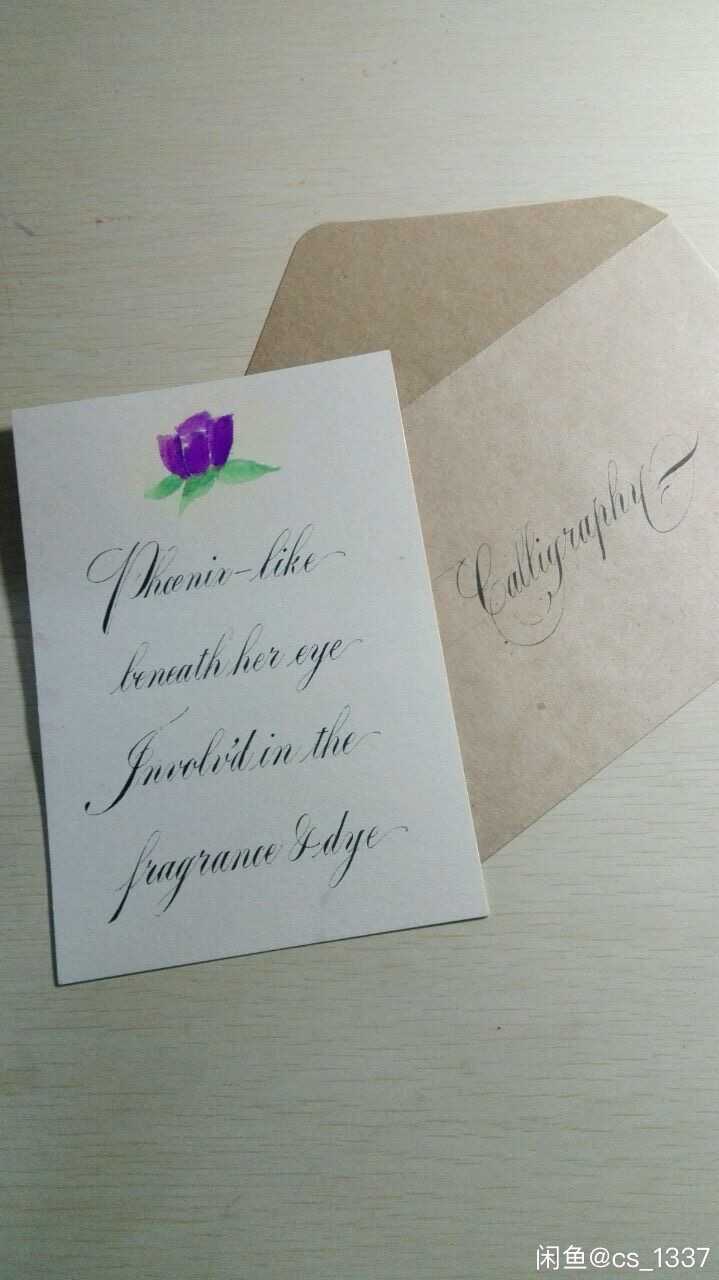 Phœnix-like
beneath her eye
Involv'd in the
fragrance & dye
Calligraphy
闲鱼@cs_1337